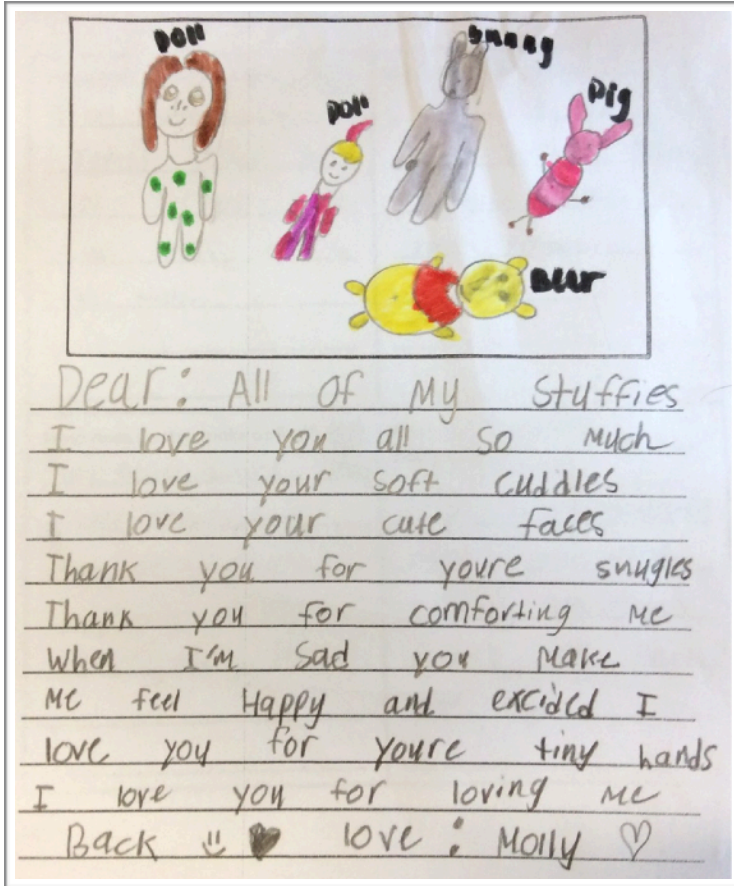 Doll
Bunny
Doll
Pig
Bear
Dear: All of My Stuffies
I love you all so Much
I love your soft cuddles
I love your cute faces
Thank you for youre snugles
Thank you for comforting Me
When I'm Sad you Make
Me feel Happy and excided I
love you for youre tiny hands
I love you for loving Me
Back love: Molly